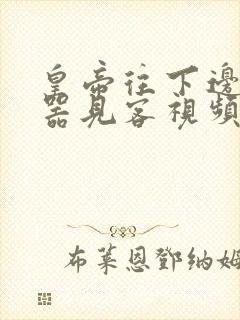 皇帝往下邊
器見客視頻
布萊恩鄧納姆